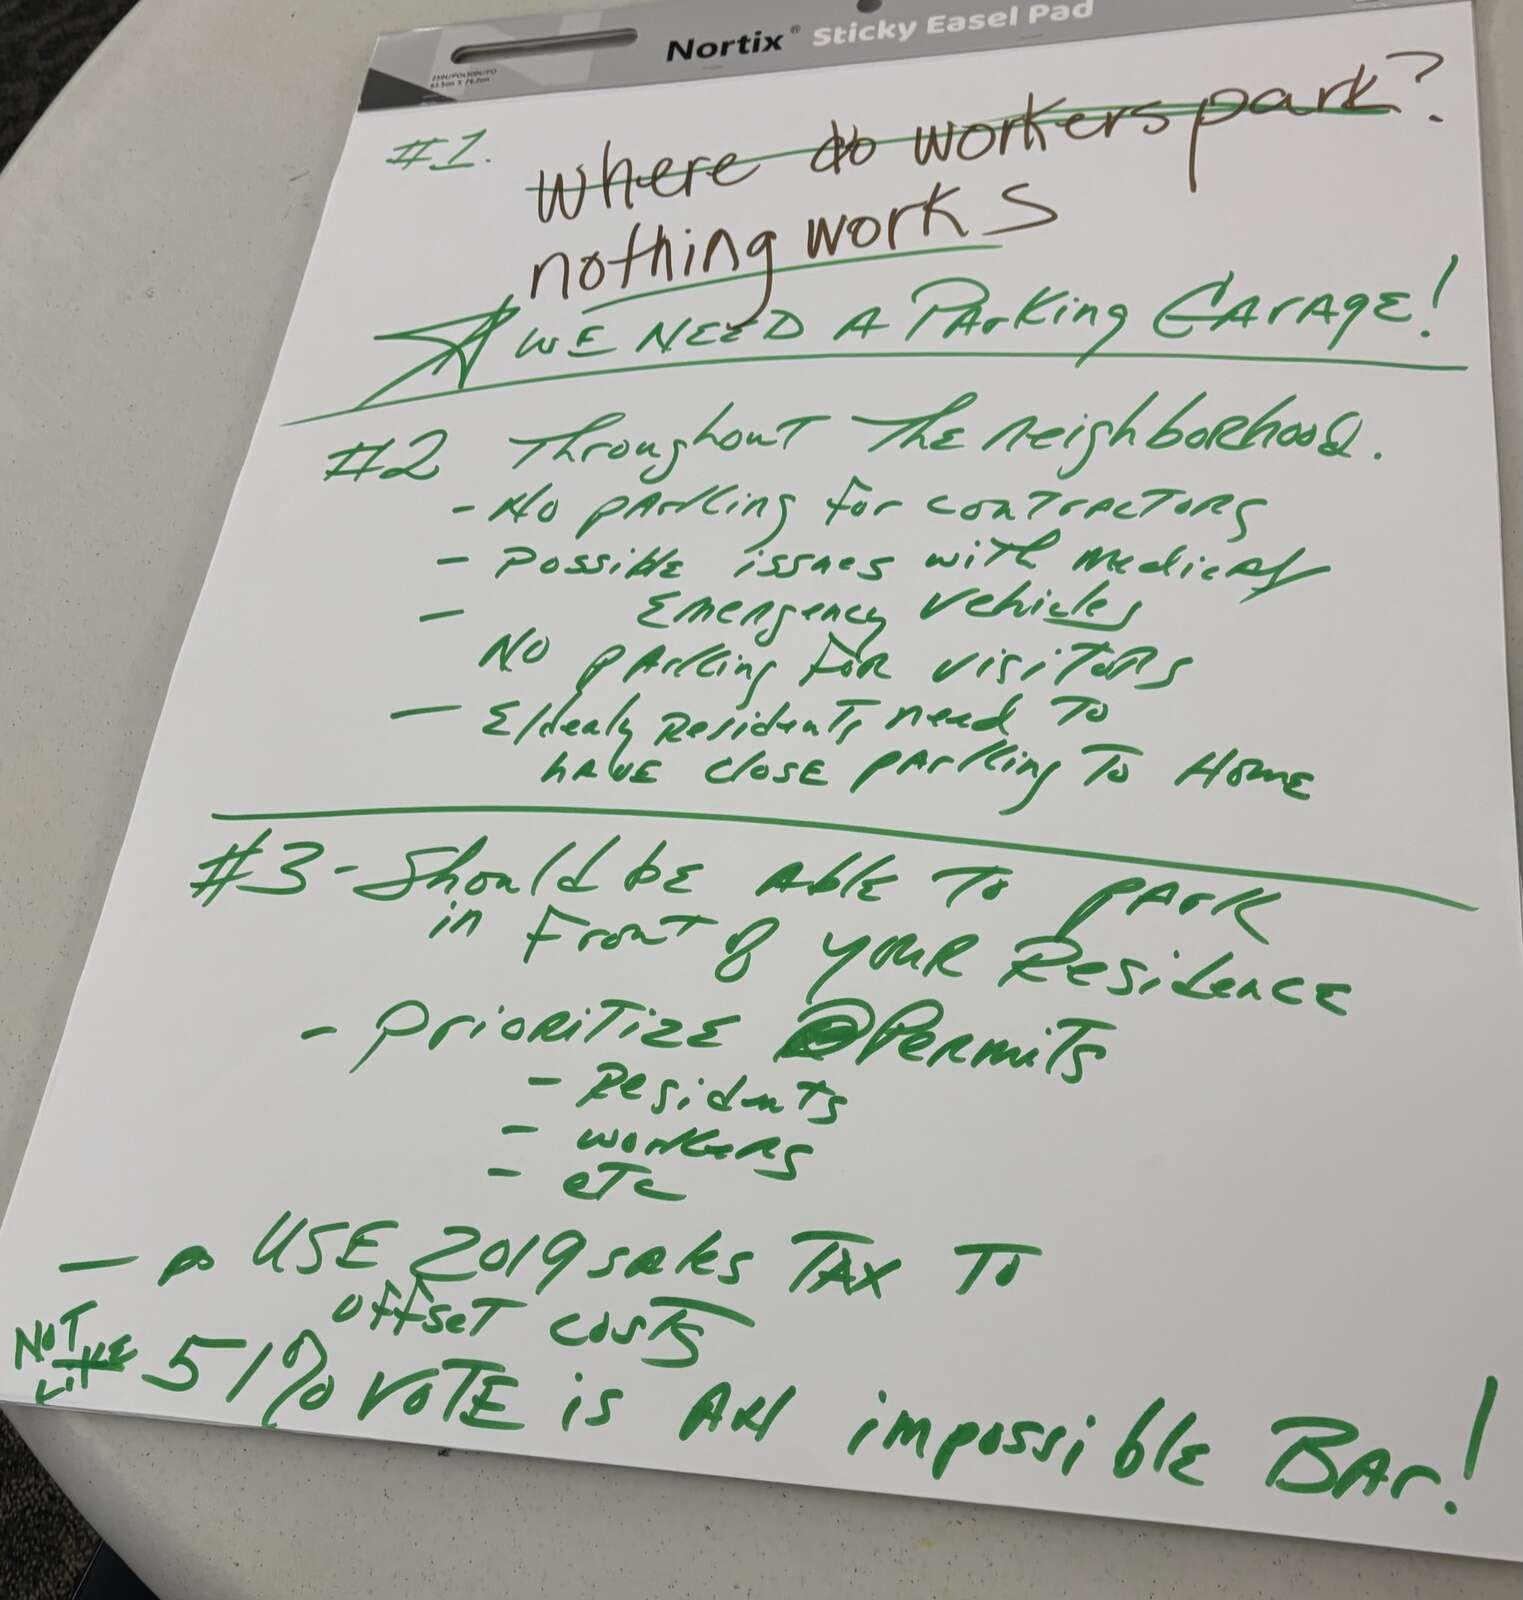 Nortix® Sticky Easel Pad
#1. where do workers park?
nothing works
WE NEED A PArKing GArAgE!
#2 Throughout ThE neighborhood.
- No pArking for conTrACTORS
- Possible issues with medical/
- Emergency Vehicles
No pArking for visitors
- Elderly Residents need To
hAVE closE pArking To HomE
#3 - Should bE AblE To pArk
in Front of your ResidencE
- PrioritizE Permits
- Residents
- workers
- eTc
- USE 2019 sales TAX To
offseT cosTs
NOT
LiKE
51% VOTE is AN impossible BAr!